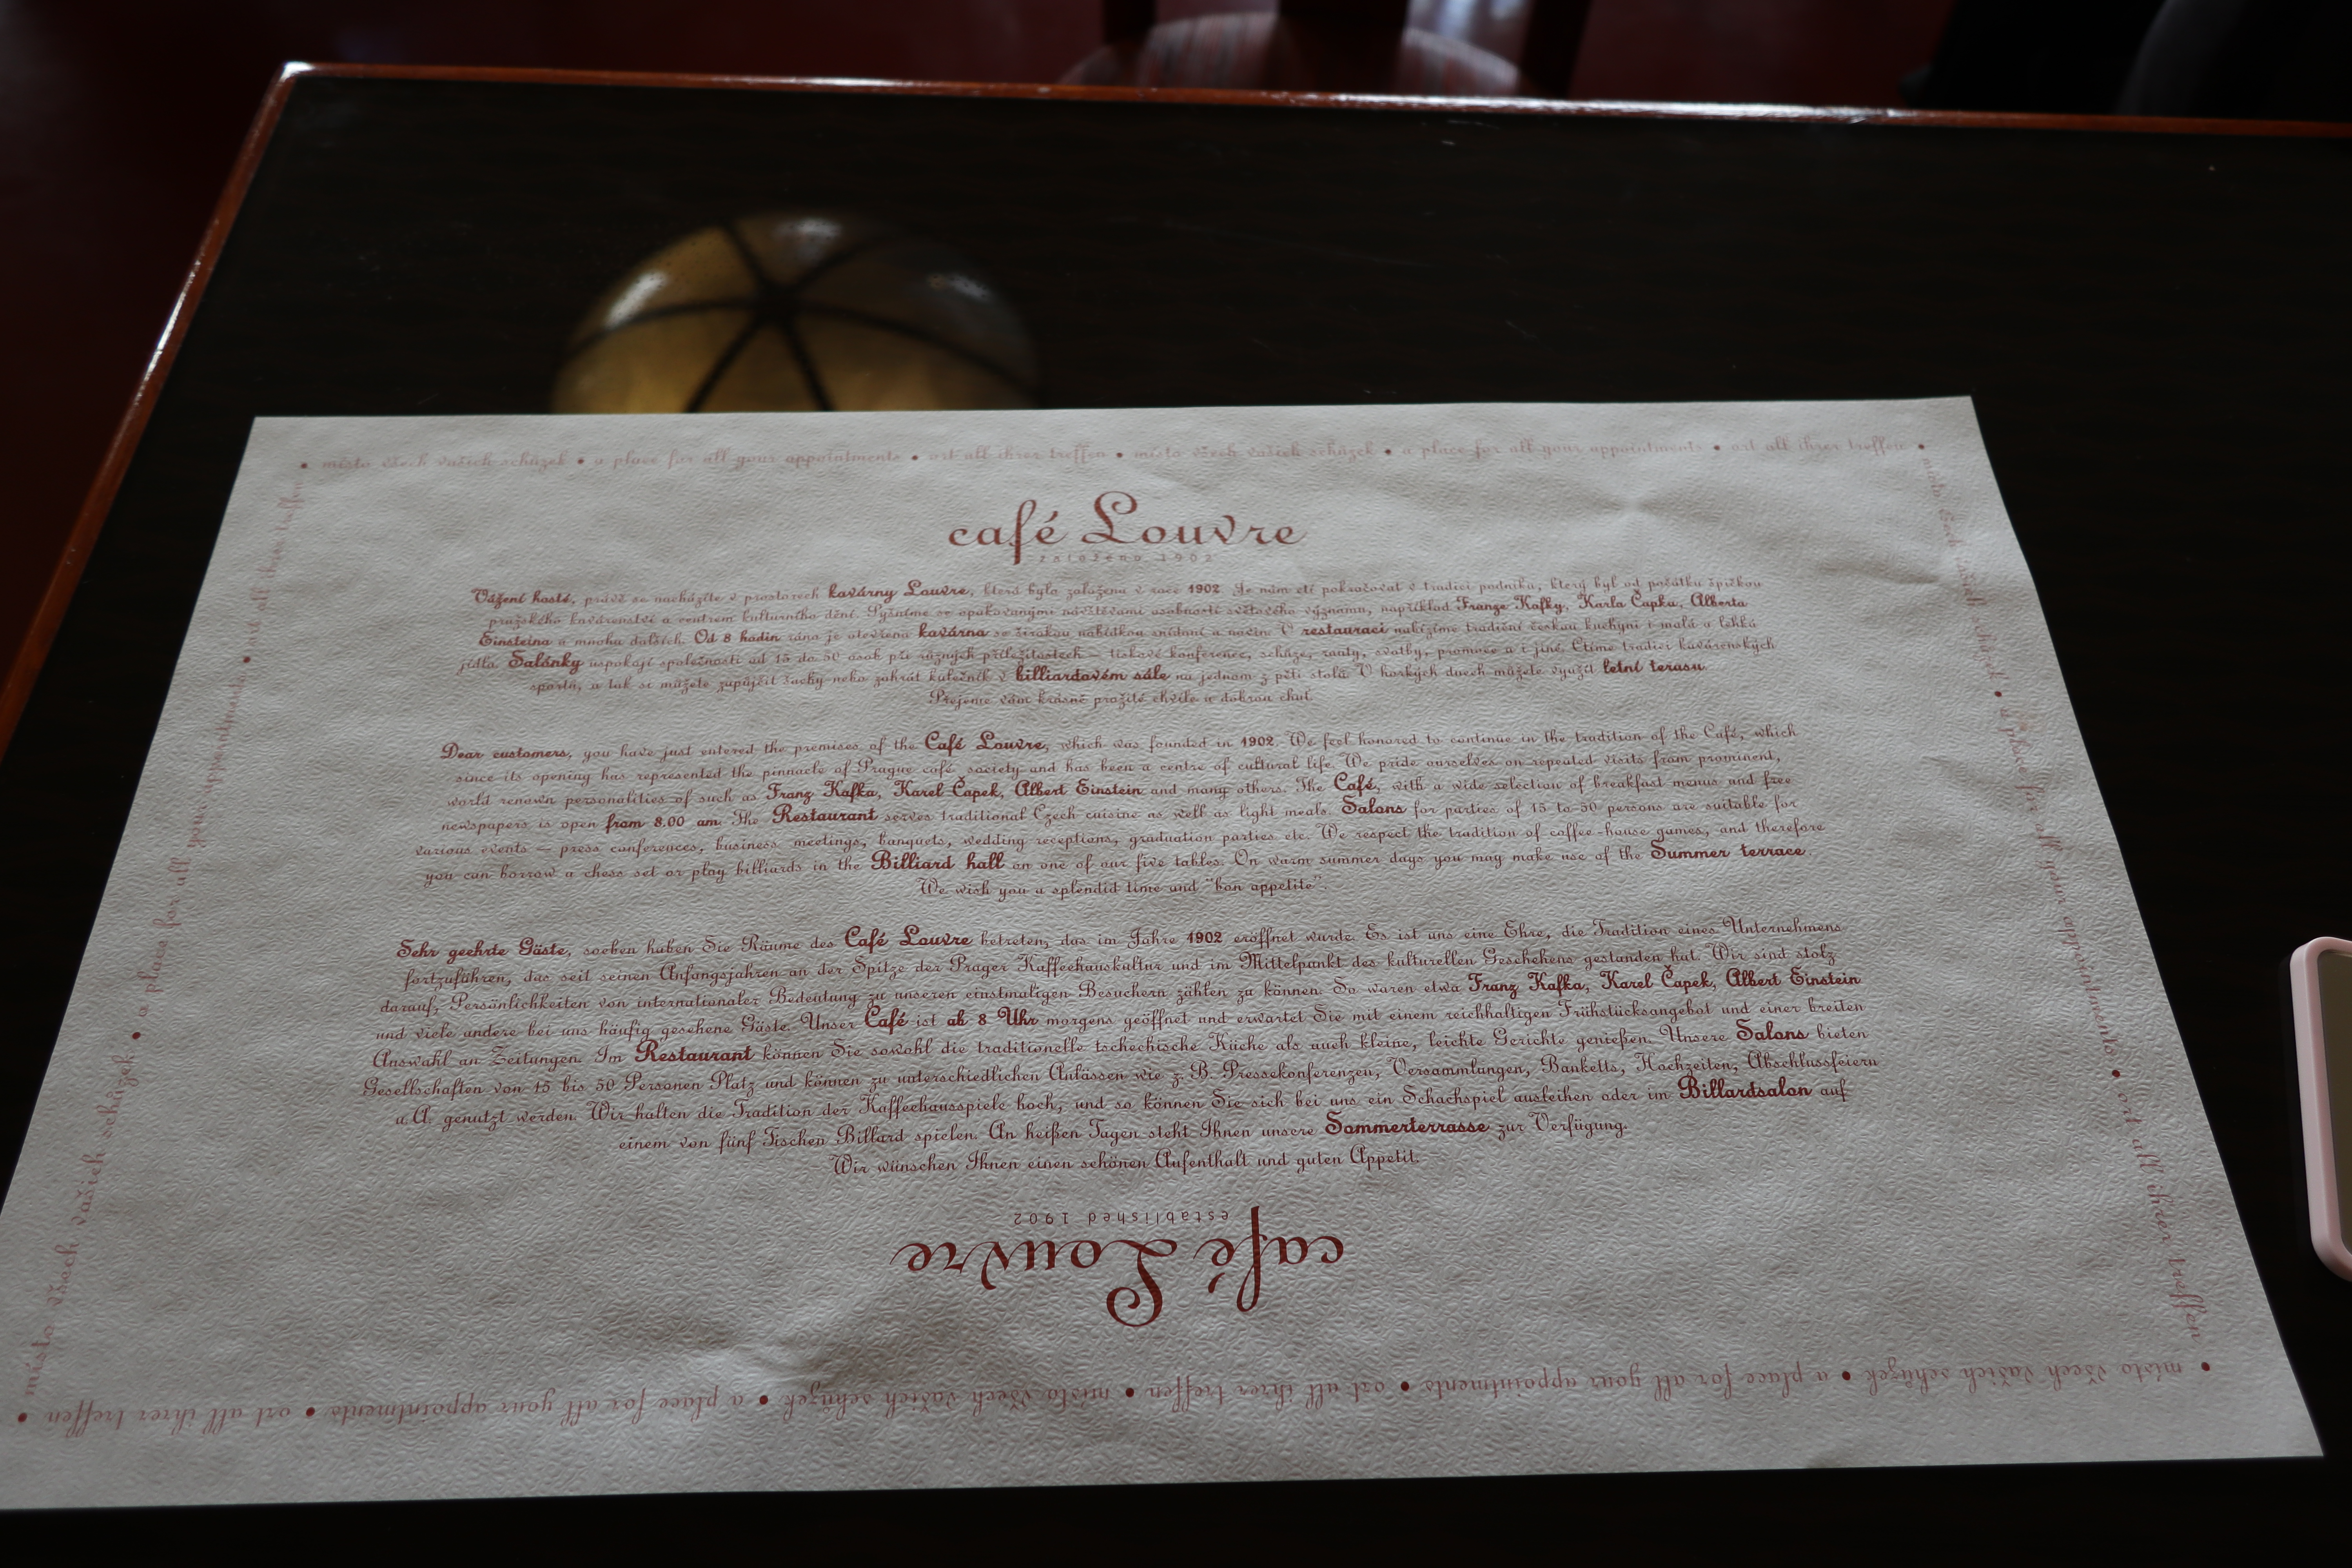 • místo všech vašich schůzek • a place for all your appointments • ort all ihrer treffen • místo všech vašich schůzek • a place for all your appointments • ort all ihrer treffen •
café Louvre
založeno 1902
Vážení hosté, právě se nacházíte v prostorech kavárny Louvre, která byla založena v roce 1902. Je nám ctí pokračovat v tradici podniku, který byl od počátku špičkou
pražského kavárenství a centrem kulturního dění. Pyšníme se opakovanými návštěvami osobností světového významu, například Franze Kafky, Karla Čapka, Alberta
Einsteina a mnoha dalších. Od 8 hodin rána je otevřena kavárna se širokou nabídkou snídaní a novin. V restauraci nabízíme tradiční českou kuchyni i malá a lehká
jídla. Salónky uspokojí společnosti od 15 do 50 osob při různých příležitostech – tiskové konference, schůze, rauty, svatby, promoce a i jiné. Ctíme tradici kavárenských
sportů, a tak si můžete zapůjčit šachy nebo zahrát kulečník v billiardovém sále na jednom z pěti stolů. V horkých dnech můžete využít letní terasu.
Přejeme vám krásně prožité chvíle a dobrou chuť.
Dear customers, you have just entered the premises of the Café Louvre, which was founded in 1902. We feel honored to continue in the tradition of the Café, which
since its opening has represented the pinnacle of Prague café society and has been a centre of cultural life. We pride ourselves on repeated visits from prominent,
world renown personalities of such as Franz Kafka, Karel Čapek, Albert Einstein and many others. The Café, with a wide selection of breakfast menus and free
newspapers is open from 8.00 am. The Restaurant serves traditional Czech cuisine as well as light meals. Salons for parties of 15 to 50 persons are suitable for
various events – press conferences, business meetings, banquets, wedding receptions, graduation parties etc. We respect the tradition of coffee-house games, and therefore
you can borrow a chess set or play billiards in the Billiard hall on one of our five tables. On warm summer days you may make use of the Summer terrace.
We wish you a splendid time and "bon appetite".
Sehr geehrte Gäste, soeben haben Sie Räume des Café Louvre betreten, das im Jahre 1902 eröffnet wurde. Es ist uns eine Ehre, die Tradition eines Unternehmens
fortzuführen, das seit seinen Anfangsjahren an der Spitze der Prager Kaffeehauskultur und im Mittelpunkt des kulturellen Geschehens gestanden hat. Wir sind stolz
darauf, Persönlichkeiten von internationaler Bedeutung zu unseren einstmaligen Besuchern zählen zu können. So waren etwa Franz Kafka, Karel Čapek, Albert Einstein
und viele andere bei uns häufig gesehene Gäste. Unser Café ist ab 8 Uhr morgens geöffnet und erwartet Sie mit einem reichhaltigen Frühstücksangebot und einer breiten
Answahl an Zeitungen. Im Restaurant können Sie sowohl die traditionelle tschechische Küche als auch kleine, leichte Gerichte genießen. Unsere Salons bieten
Gesellschaften von 15 bis 50 Personen Platz und können zu unterschiedlichen Anlässen wie z. B. Pressekonferenzen, Versammlungen, Banketts, Hochzeiten, Abschlussfeiern
u.A. genutzt werden. Wir halten die Tradition der Kaffeehausspiele hoch, und so können Sie sich bei uns ein Schachspiel ausleihen oder im Billardsalon auf
einem von fünf Tischen Billard spielen. An heißen Tagen steht Ihnen unsere Sommerterrasse zur Verfügung.
Wir wünschen Ihnen einen schönen Aufenthalt und guten Appetit.
café Louvre
established 1902
• místo všech vašich schůzek • a place for all your appointments • ort all ihrer treffen • místo všech vašich schůzek • a place for all your appointments • ort all ihrer treffen •
místo všech vašich schůzek • a place for all your appointments • ort all ihrer treffen
místo všech vašich schůzek • a place for all your appointments • ort all ihrer treffen